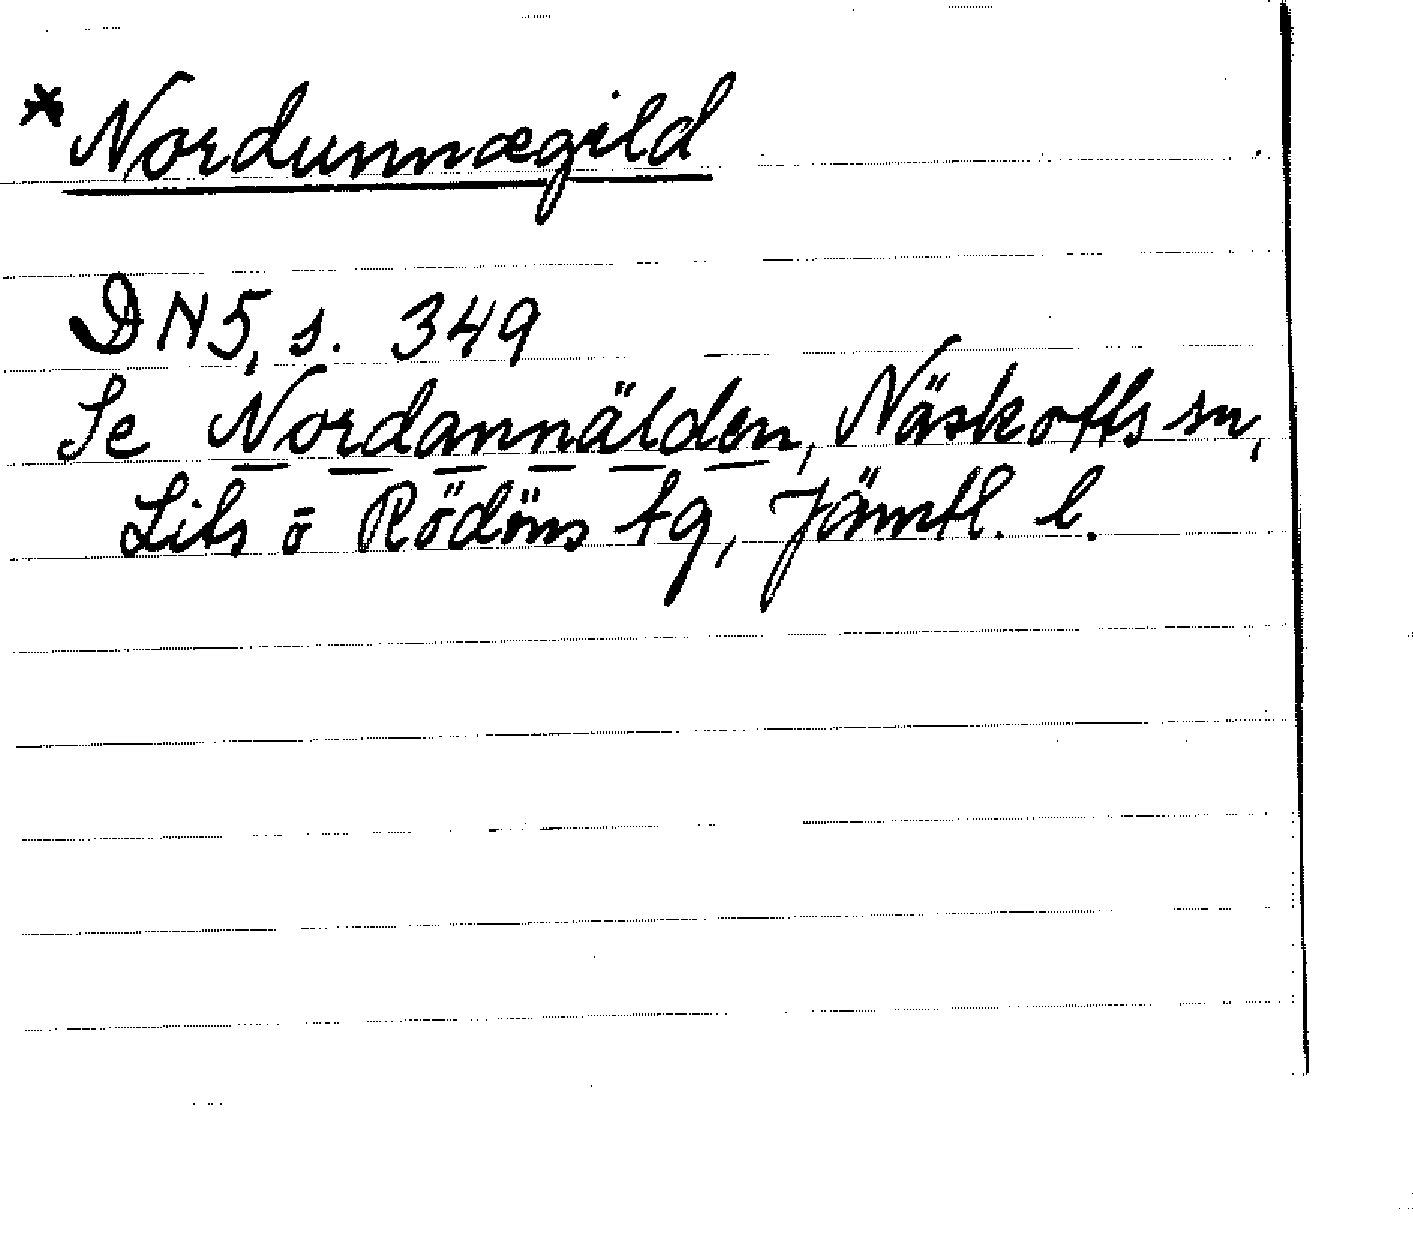 *Nordunnægild
DN5, s. 349
Se Nordannälden, Näskotts sn,
Lits o Rödöns tg, Jämtl. l.